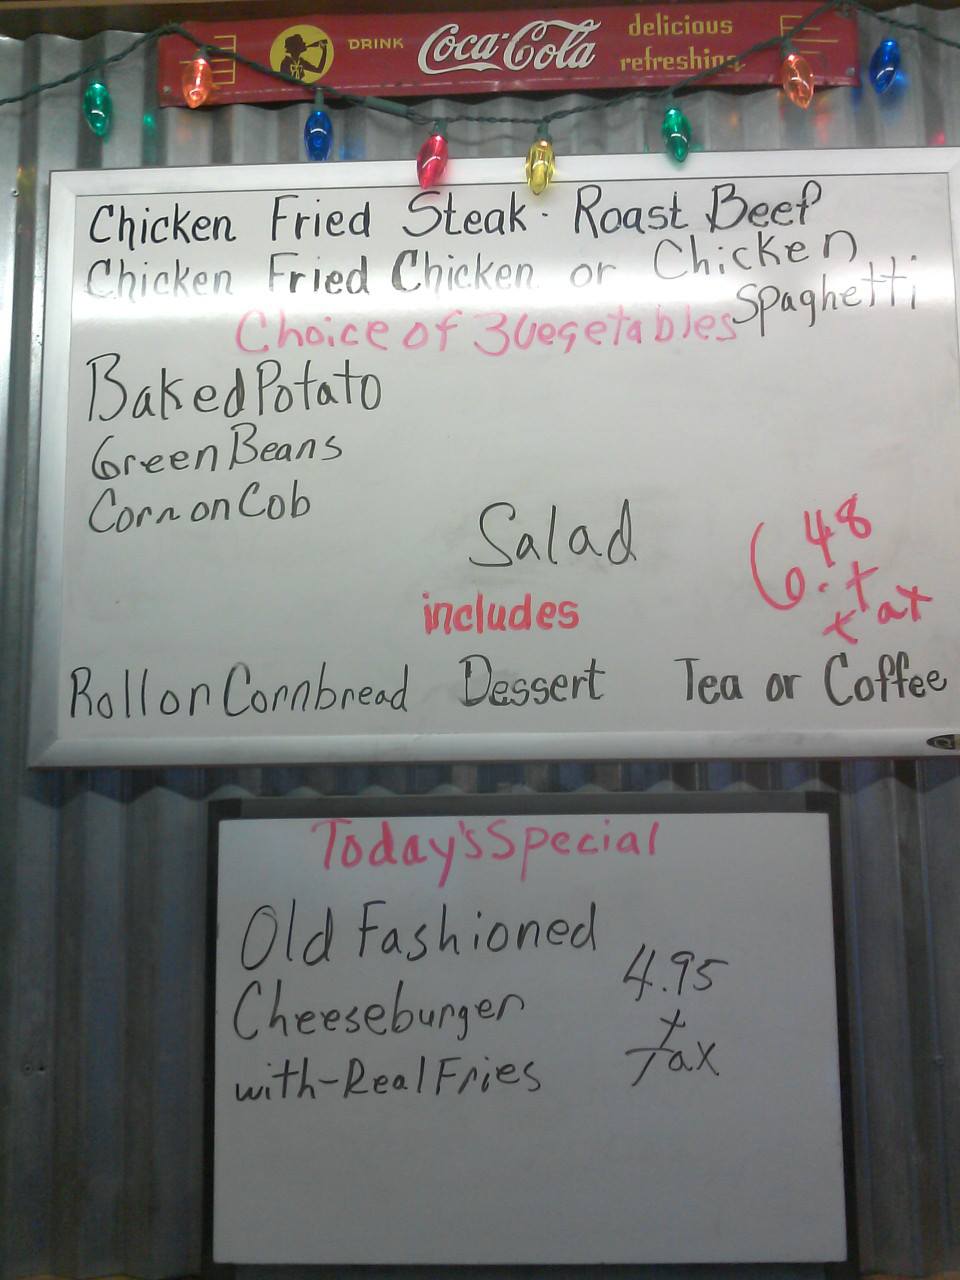 DRINK Coca-Cola delicious
refreshing
Chicken Fried Steak · Roast Beef
Chicken Fried Chicken or Chicken
Spaghetti
Choice of 3 Vegetables
Baked Potato
Green Beans
Corn on Cob
Salad
6.48
+ tax
includes
Roll or Cornbread Dessert Tea or Coffee
Today's Special
Old Fashioned
Cheeseburger 4.95
+
with-Real Fries Tax